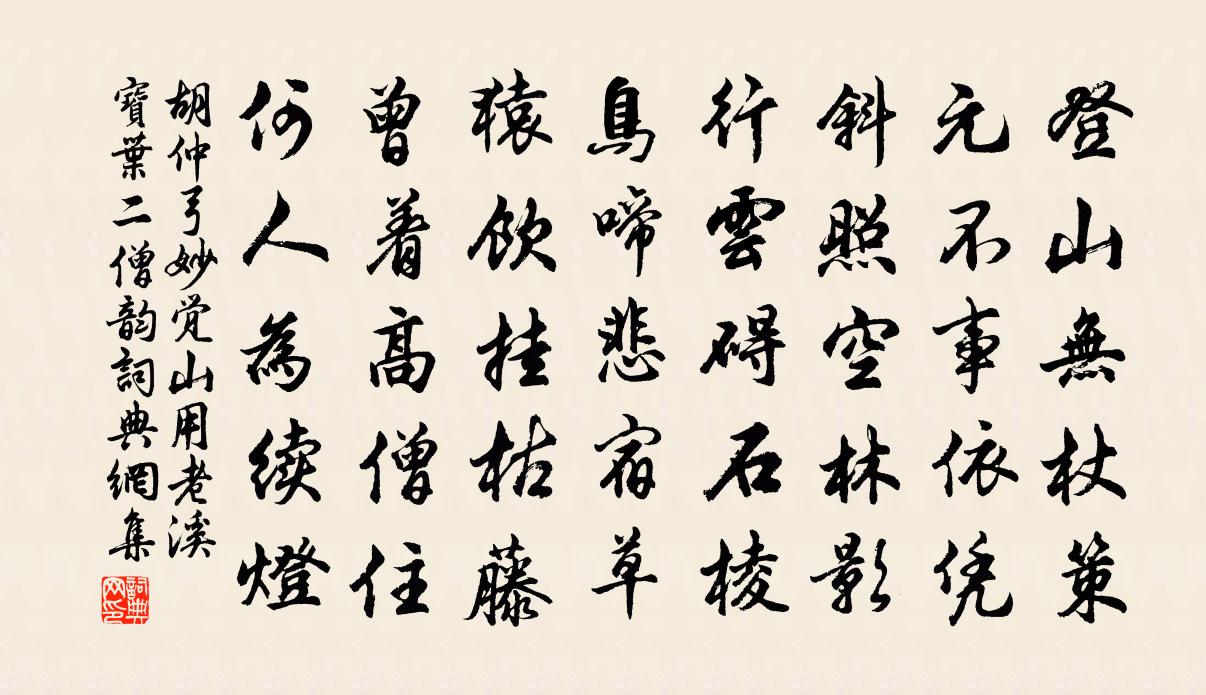 登山無杖策
元不事依凭
斜照空林影
行雲碍石棱
鳥啼悲宿草
猿飲挂枯藤
曾着高僧住
何人為续燈
胡仲弓妙觉山用老溪
寶葉二僧韵詞典網集
詞典网印